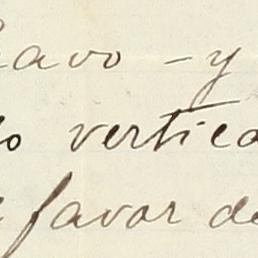 avo - y
o vertica
favor de